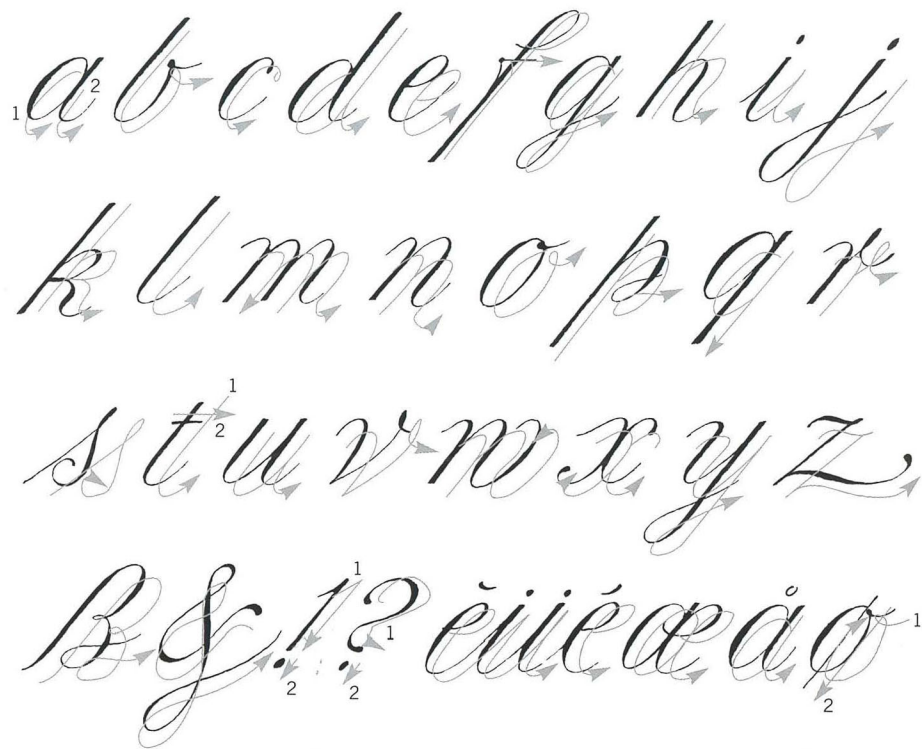 1 a 2 b c d e f g h i j
k l m n o p q r
s t 1 2 u v w x y z
ß & ! 1 2 ? 1 2 ě ü é æ å ø 1 2